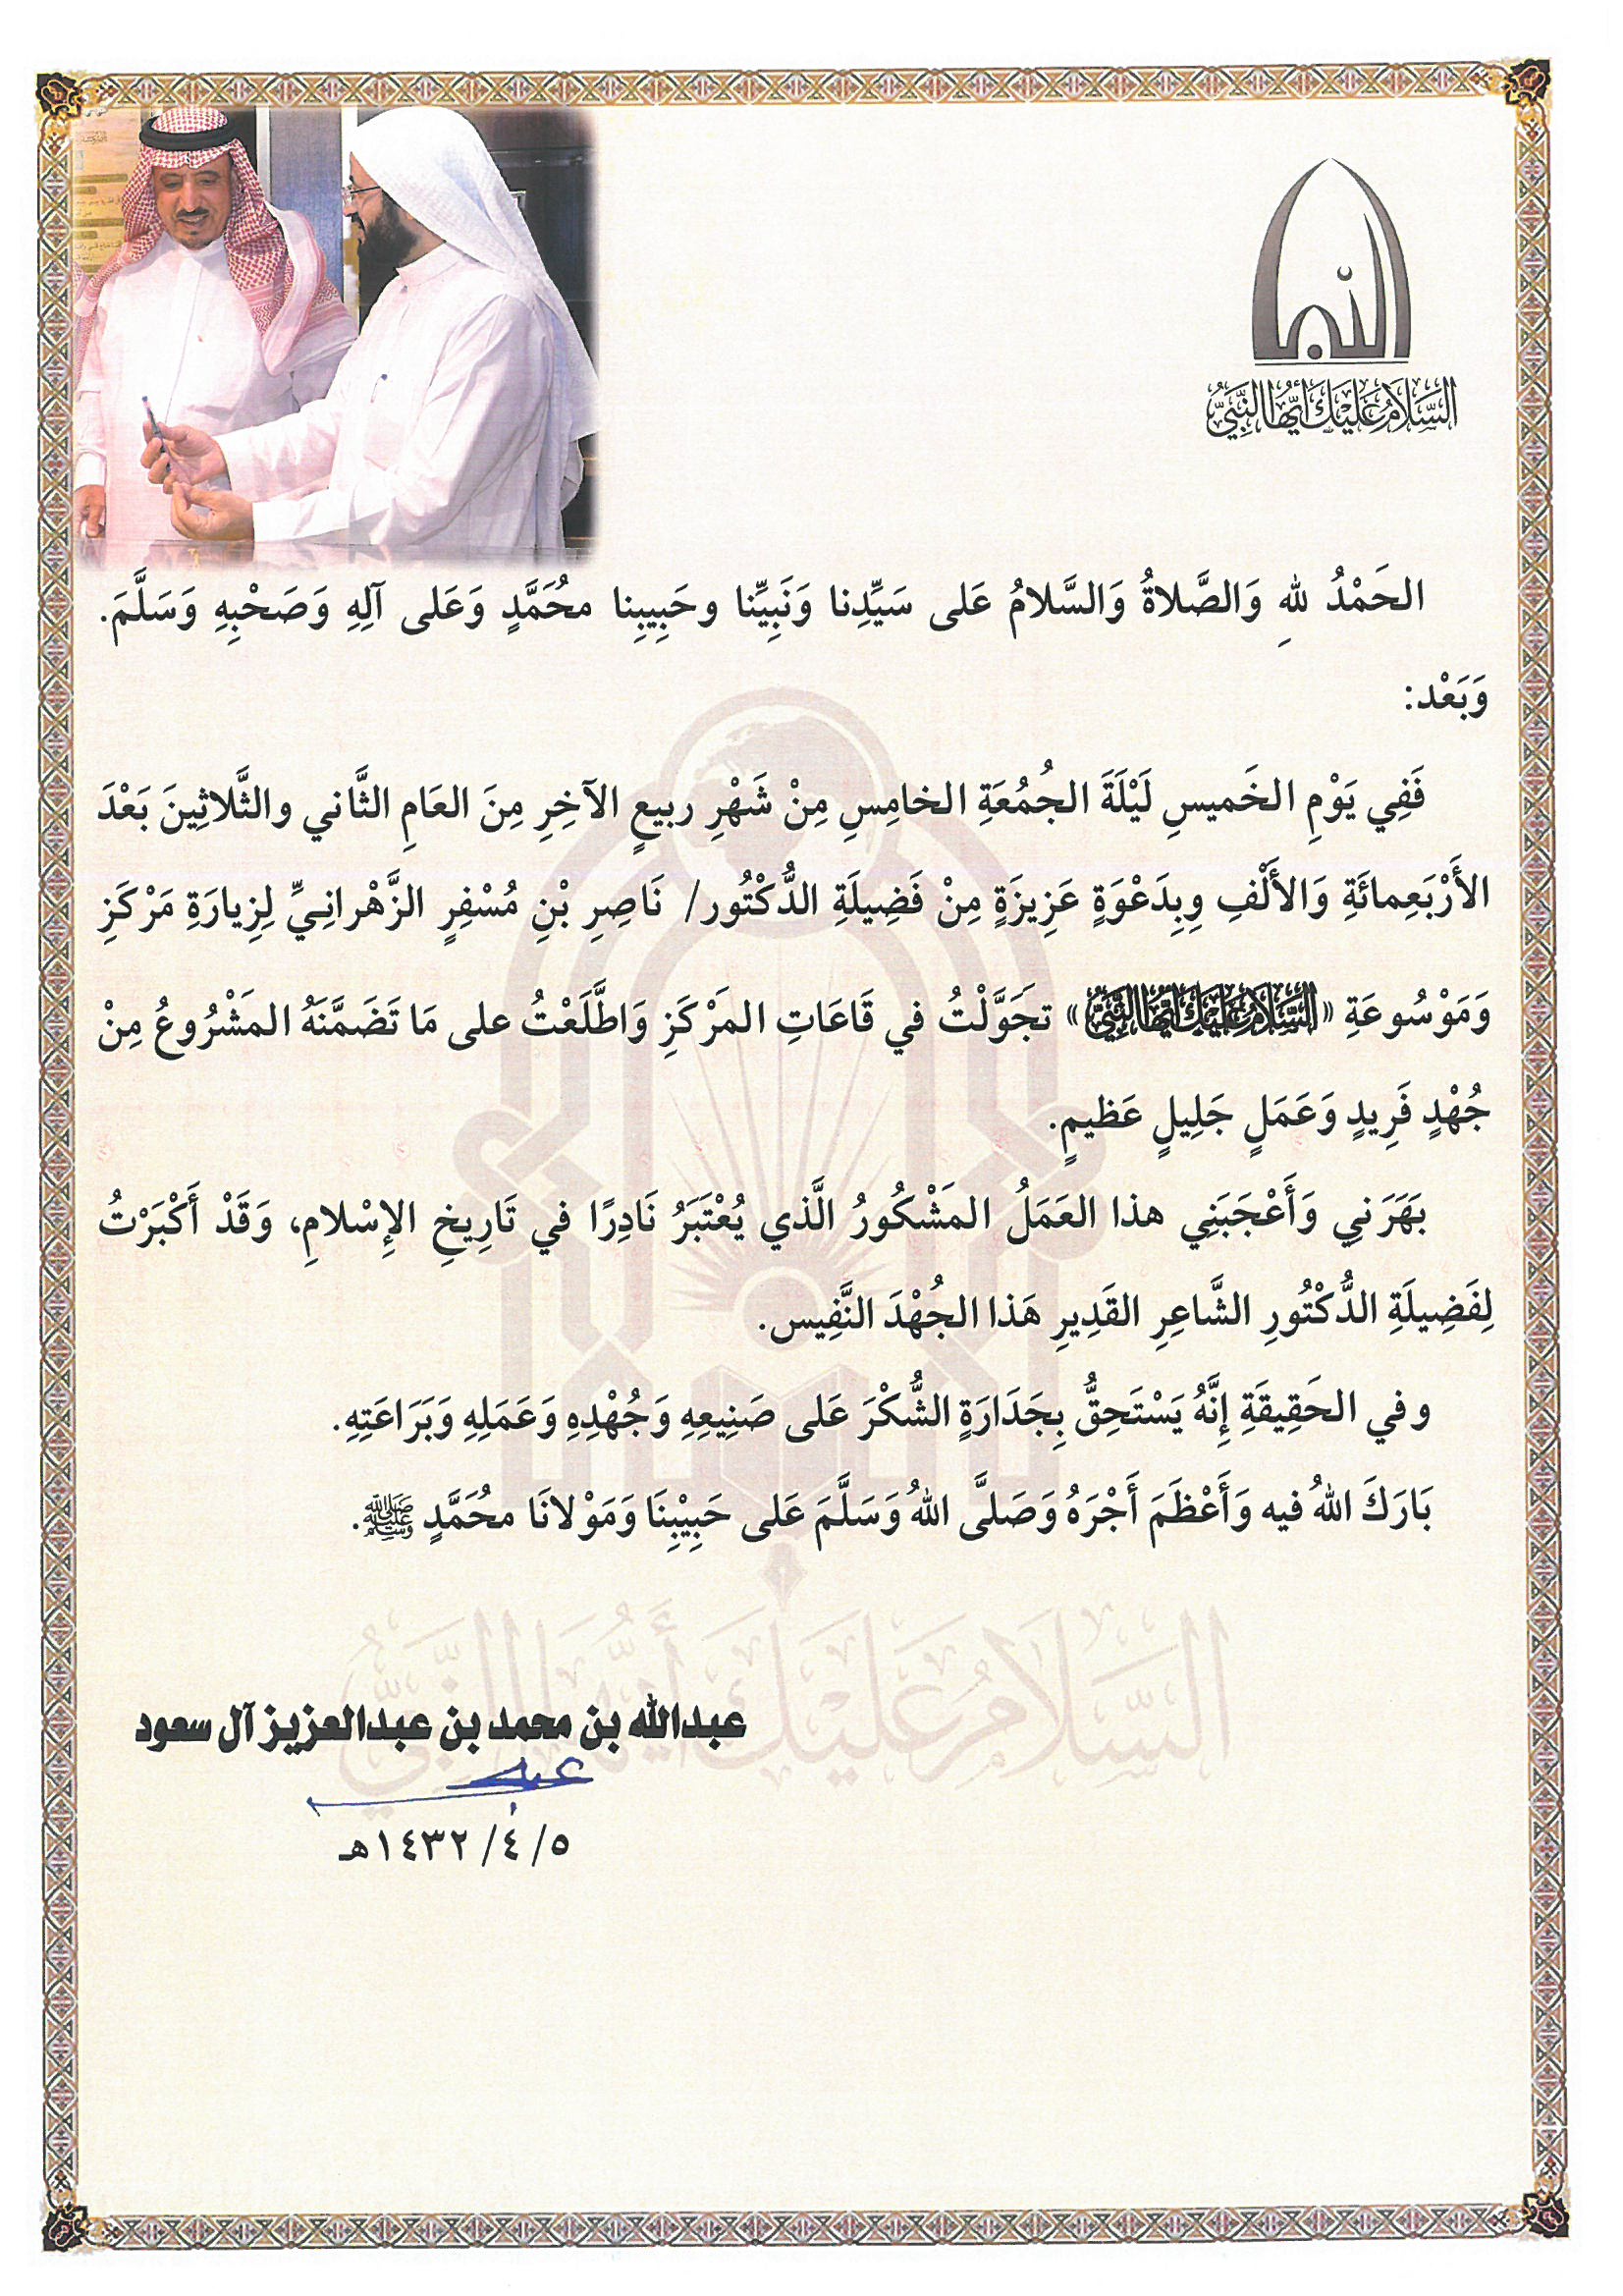 السَّلَامُ عَلَيْكَ أَيُّهَا النَّبِيُّ
الحَمْدُ للهِ وَالصَّلاةُ وَالسَّلامُ عَلى سَيِّدِنا وَنَبِيِّنا وحَبِيبِنا محُمَّدٍ وَعَلى آلِهِ وَصَحْبِهِ وَسَلَّمَ.
وَبَعْد:
فَفِي يَوْمِ الخَميسِ لَيْلَةَ الجُمُعَةِ الخامِسِ مِنْ شَهْرِ ربيعٍ الآخِرِ مِنَ العَامِ الثَّاني والثَّلاثِينَ بَعْدَ
الأَرْبَعِمائَةِ وَالأَلْفِ وِبِدَعْوَةٍ عَزِيزَةٍ مِنْ فَضِيلَةِ الدُّكْتُور/ نَاصِرِ بْنِ مُسْفِرٍ الزَّهْرانِيِّ لِزِيارَةِ مَرْكَزِ
وَمَوْسُوعَةِ «السَّلَامُ عَلَيْكَ أَيُّهَا النَّبِيُّ» تجَوَّلْتُ في قَاعَاتِ المَرْكَزِ وَاطَّلَعْتُ على مَا تَضَمَّنَهُ المَشْرُوعُ مِنْ
جُهْدٍ فَرِيدٍ وَعَمَلٍ جَلِيلٍ عَظيمٍ.
بَهَرَنِي وَأَعْجَبَنِي هذا العَمَلُ المَشْكُورُ الَّذي يُعْتَبَرُ نَادِرًا في تَارِيخِ الإِسْلامِ، وَقَدْ أَكْبَرْتُ
لِفَضِيلَةِ الدُّكْتُورِ الشَّاعِرِ القَدِيرِ هَذا الجُهْدَ النَّفِيس.
وفي الحَقِيقَةِ إِنَّهُ يَسْتَحِقُّ بِجَدَارَةٍ الشُّكْرَ عَلى صَنِيعِهِ وَجُهْدِهِ وَعَمَلِهِ وَبَرَاعَتِهِ.
بَارَكَ اللهُ فيه وَأَعْظَمَ أَجْرَهُ وَصَلىَّ اللهُ وَسَلَّمَ عَلى حَبِيْبِنَا وَمَوْلانَا محُمَّدٍ ﷺ.
السَّلَامُ عَلَيْكَ أَيُّهَا النَّبِيُّ
عبدالله بن محمد بن عبدالعزيز آل سعود
٥/ ٤/ ١٤٣٢هـ